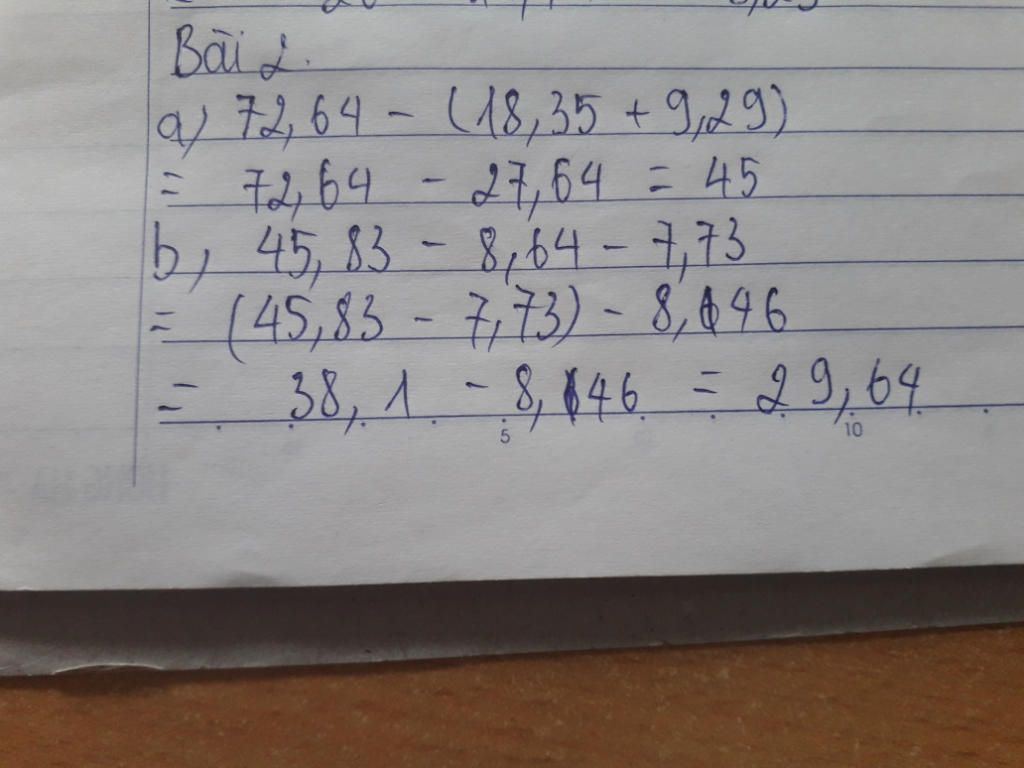 Bài 2.
a) 72,64 - (18,35 + 9,29)
= 72,64 - 27,64 = 45
b, 45,83 - 8,64 - 7,73
= (45,83 - 7,73) - 8,46
= 38,1 - 8,46 = 29,64
5 10